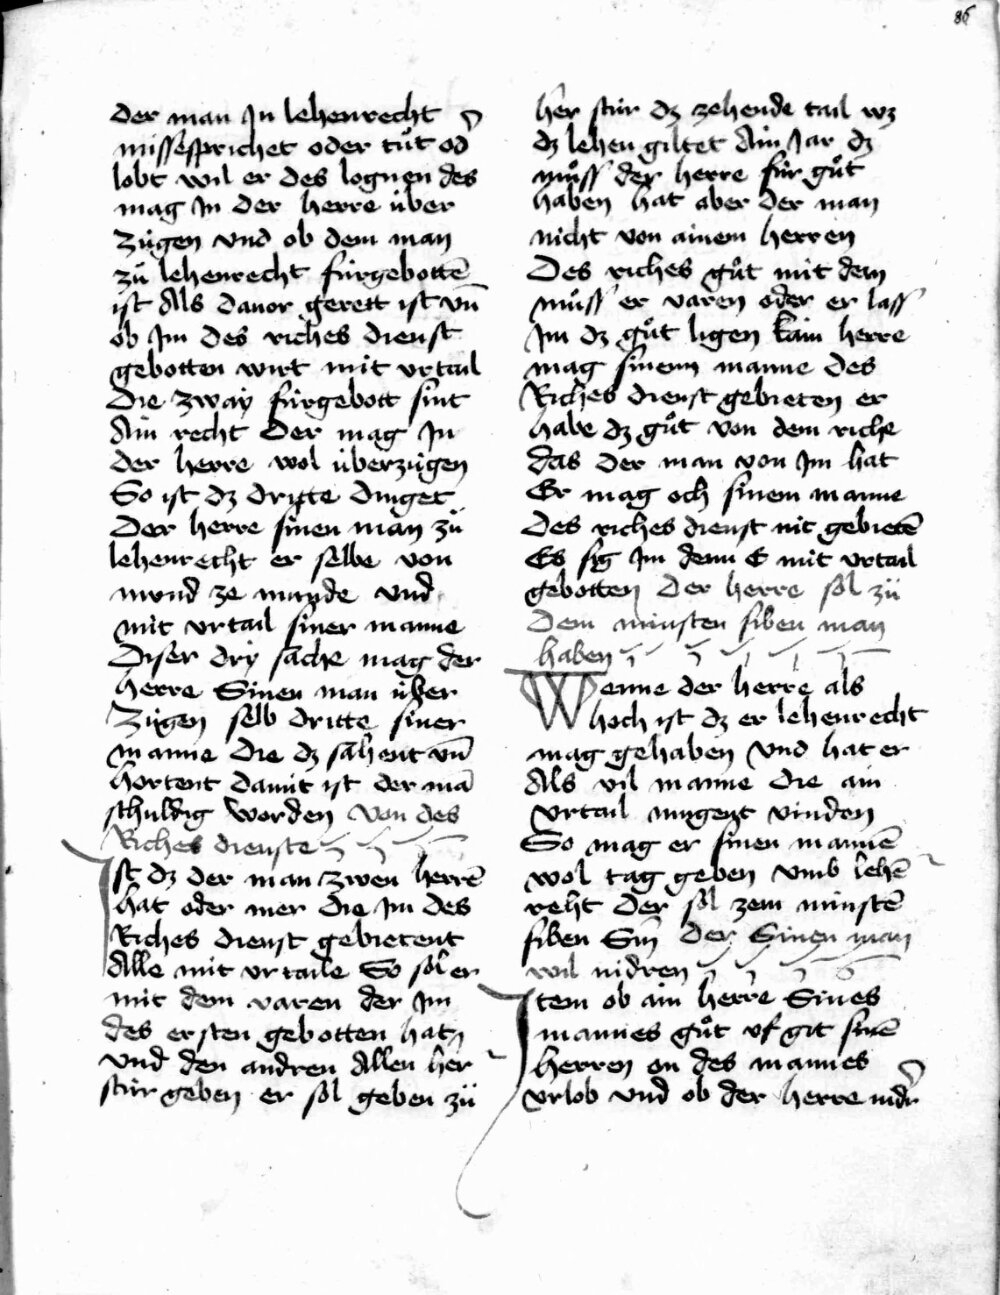 86
der man In lehenrecht
missesprichet oder tuͦt od̄
lobt wil er des lognen des
mag In der herre über
zügen vnd ob dem man
zü lehenrecht fürgebottē
ist Als dauor gerett ist vn̄
ob Im des riches dienst
gebotten wirt mit vrtail
die zwaÿ fürgebott sint
Ain recht Der mag In
der herre wol überzügen
So ist dz dritte dinget
Der herre sinen man zü
lehenrecht er selbe von
mvnd ze munde vnd
mit vrtail siner manne
Diser drÿ sache mag der
herre Sinen man über
zügen selb dritte siner
manne die dz sahent vn̄
hortent damit ist der mā
schuldig worden von des
Riches dienste
Ist dz der man zwen herrē
hat oder mer die Im des
Riches dienst gebietent
Alle mit vrtaile So sol er
mit dem varen der Im
des ersten gebotten hat
vnd den andren Allen her
stür geben er sol geben zü
her stür dz zehende tail wz
dz lehen giltet Ain Jar dz
muͦss der herre für guͦt
haben hat aber der man
nicht von ainem herren
Des riches guͦt mit dem
muͦss er varen oder er lass
Im dz guͦt ligen kain herre
mag sinem manne des
Riches dienst gebieten er
habe dz guͦt von dem riche
das der man von Im hat
Er mag och sinem manne
des riches dienst nit gebietē
Es sÿg Im denn E mit vrtail
gebotten Der herre sol zü
Dem minsten siben man
haben
Wenne der herre als
hoch ist dz er lehenrecht
mag gehaben vnd hat er
Als vil manne die ain
vrtail mugent vinden
So mag er sinen mannē
wol tag geben vmb lehē
reht Der sol zem minstē
siben Sin Der Sinen man
wil nidren
Item ob ain herre Sines
mannes guͦt vf git sinē
herren on des mannes
vrlob vnd ob der herre nidr̄